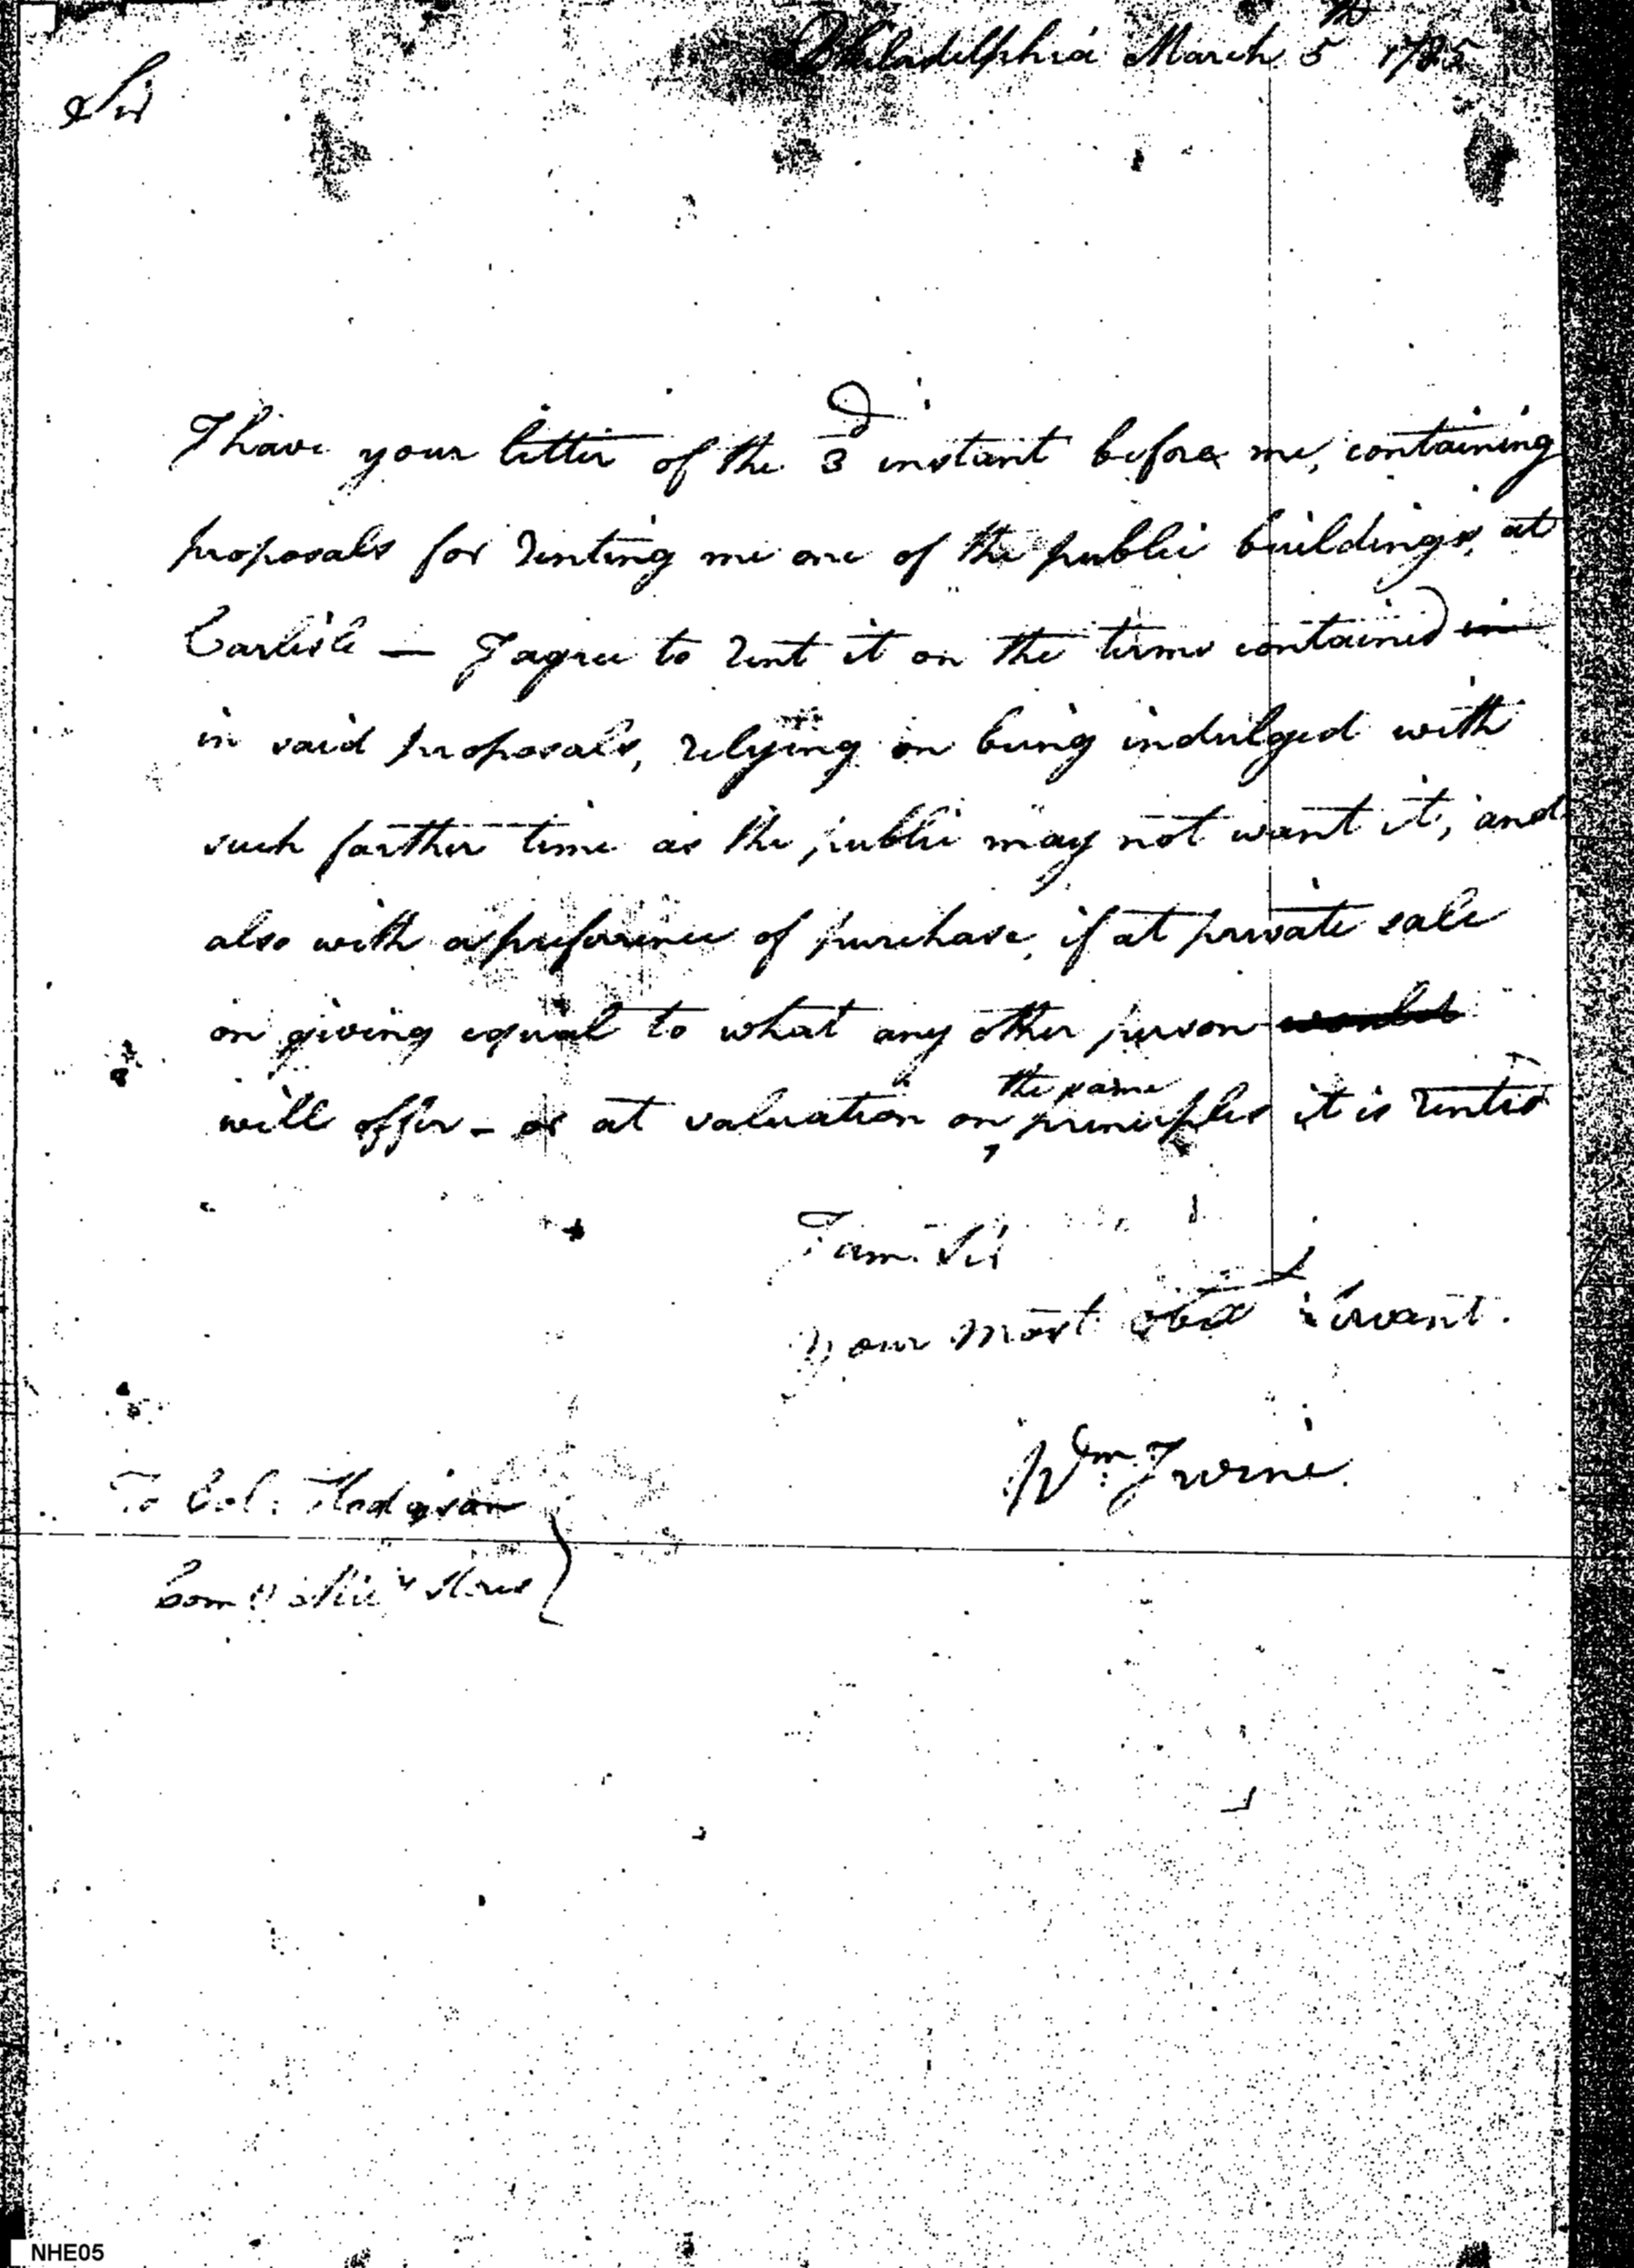 Philadelphia March 5th 1785
Sir
I have your letter of the 3d instant before me, containing
proposals for renting me one of the public buildings, at
Carlisle — I agree to rent it on the terms contained in
in said proposals, relying on being indulged with
such farther time as the public may not want it, and
also with a preference of purchase, if at private sale
on giving equal to what any other person would
will offer – or at valuation on the same principles it is rented
I am Sir
your most obdt Servant.
Wm. Irvine.
To Col. Hodgson
Com Miy Stores
NHE05